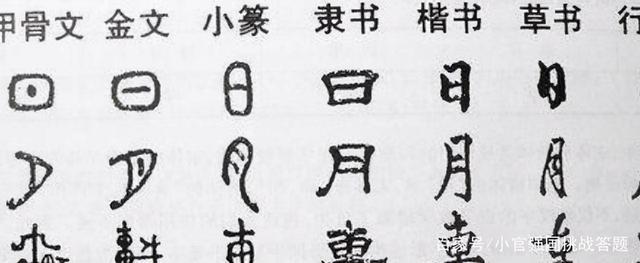 甲骨文 金文 小篆 隶书 楷书 草书 行
日 日 日 日 日 日
月 月 月 月 月 月
百家号/小官强国挑战答题